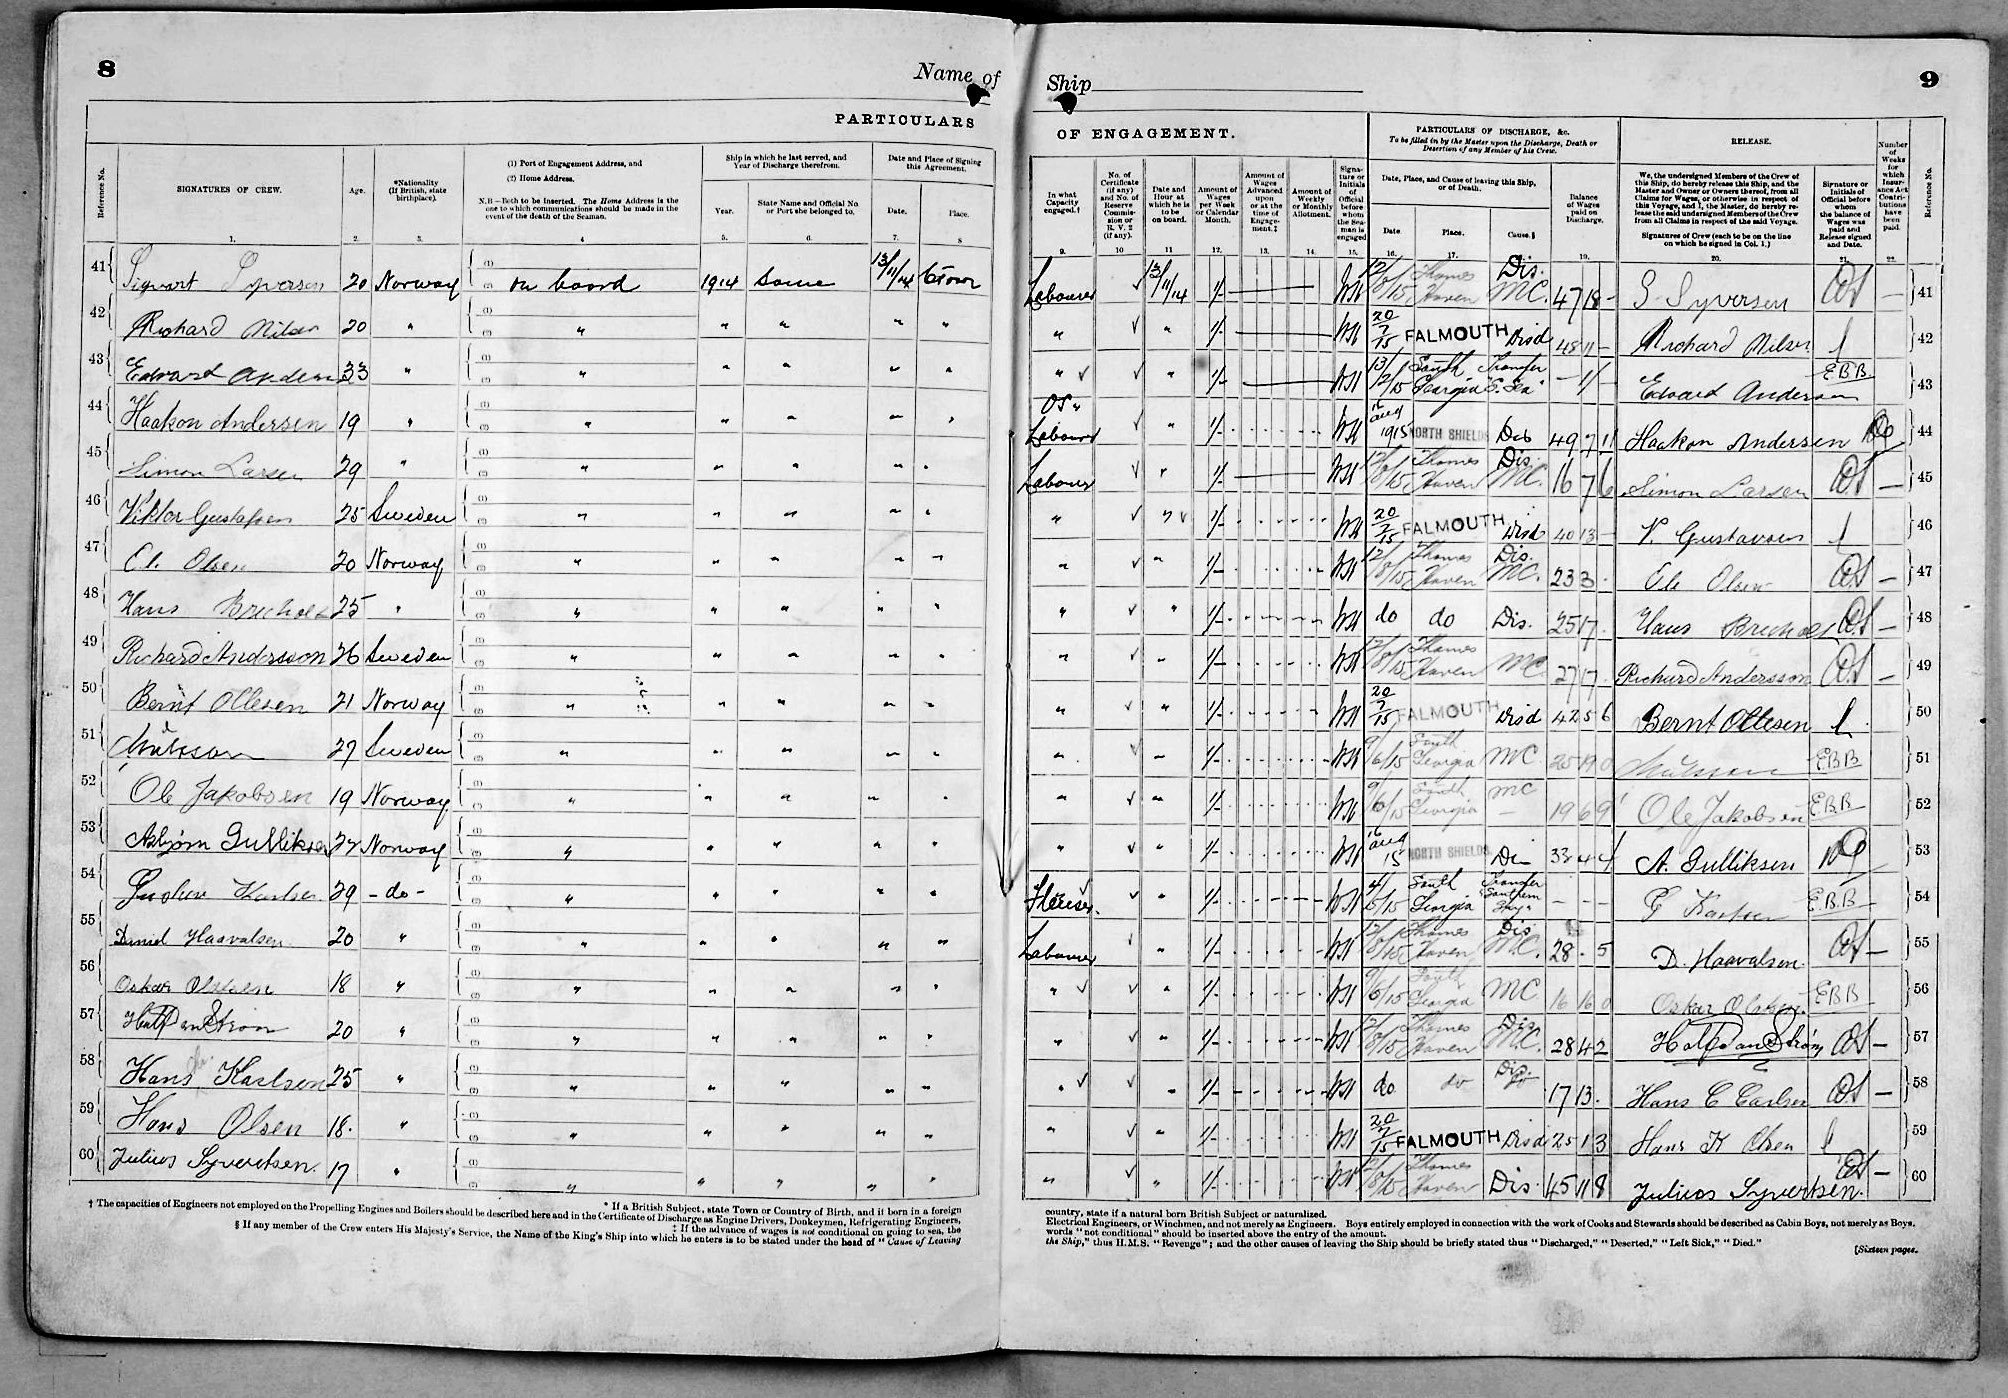 8
Name of
PARTICULARS
Reference No.
SIGNATURES OF CREW.
Age.
*Nationality
(If British, state
birthplace).
(1) Port of Engagement Address, and
(2) Home Address.
N.B—Both to be inserted. The Home Address is the
one to which communications should be made in the
event of the death of the Seaman.
Ship in which he last served, and
Year of Discharge therefrom.
Year.
State Name and Official No.
or Port she belonged to.
Date and Place of Signing
this Agreement.
Date.
Place.
1. 2. 3. 4 5. 6. 7. 8
41 Sigvart Syversen 20 Norway (1) (2) on board 1914 Same 13/11/14 C Town
42 Richard Nilsen 20 " (1) (2) " " " " "
43 Edvard Andersen 33 " (1) (2) " " " " "
44 Haakon Andersen 19 " (1) (2) " " " " "
45 Simon Larsen 29 " (1) (2) " " " " "
46 Viktor Gustafsen 25 Sweden (1) (2) " " " " "
47 Olsen 20 Norway (1) (2) " " " " "
48 Hans 25 " (1) (2) " " " " "
49 Richard Andersson 26 Sweden (1) (2) " " " " "
50 Bernt Ollesen 21 Norway (1) (2) " " " " "
51 27 Sweden (1) (2) " " " " "
52 Ole Jakobsen 19 Norway (1) (2) " " " " "
53 Asbjørn Gulliksen 22 Norway (1) (2) " " " " "
54 Gustav Karlsen 29 - do - (1) (2) " " " " "
55 Daniel Haavalsen 20 " (1) (2) " " " " "
56 Oskar Olsen 18 " (1) (2) " " " " "
57 Halfdan Strøm 20 " (1) (2) " " " " "
58 Hans Karlsen 25 " (1) (2) " " " " "
59 Hans Olsen 18. " (1) (2) " " " " "
60 Julius Syvertsen. 17 " (1) (2) " " " " "
* If a British Subject, state Town or Country of Birth, and if born in a foreign
† The capacities of Engineers not employed on the Propelling Engines and Boilers should be described here and in the Certificate of Discharge as Engine Drivers, Donkeymen, Refrigerating Engineers,
‡ If the advance of wages is not conditional on going to sea, the
§ If any member of the Crew enters His Majesty's Service, the Name of the King's Ship into which he enters is to be stated under the head of "Cause of Leaving
Ship
9
OF ENGAGEMENT.
PARTICULARS OF DISCHARGE, &c.
To be filled in by the Master upon the Discharge, Death or
Desertion of any Member of his Crew.
RELEASE.
In what
Capacity
engaged.†
No. of
Certificate
(if any)
and No. of
Reserve
Commis-
sion or
R. V. 2
(if any).
Date and
Hour at
which he is
to be
on board.
Amount of
Wages
per Week
or Calendar
Month.
Amount of
Wages
Advanced
upon
or at the
time of
Engage-
ment.‡
Amount of
Weekly
or Monthly
Allotment.
Signa-
ture or
Initials of
Official
before
whom
the Sea-
man is
engaged
Date, Place, and Cause of leaving this Ship,
or of Death.
Date
Place.
Cause.§
Balance
of Wages
paid on
Discharge.
We, the undersigned Members of the Crew of
this Ship, do hereby release this Ship, and the
Master and Owner or Owners thereof, from all
Claims for Wages, or otherwise in respect of
this Voyage, and I, the Master, do hereby re-
lease the said undersigned Members of the Crew
from all Claims in respect of the said Voyage.
Signatures of Crew (each to be on the line
on which he signed in Col. 1.)
Signature or
Initials of
Official before
whom
the balance of
Wages was
paid and
Release signed
and Date.
Number
of
Weeks
for
which
Insur-
ance Act
Contribu-
tions
have
been
paid.
Reference No.
9. 10 11 12. 13. 14. 15. 16. 17. 18. 19. 20. 21. 22.
Labourer ✓ 13/11/14 1/- 12/8/15 Thames Haven Dis. M.C. 47 18 - S. Syversen — 41
" ✓ " 1/- 20/7/15 FALMOUTH Disd 48 11 - Richard Nilsen 42
" ✓ ✓ " 1/- 13/12/15 South Georgia Transfer - 1/- Edvard Andersen EBB 43
OS " Labourer ✓ " 1/- 16 Aug 1915 NORTH SHIELDS Dis 49 7 11 Haakon Andersen 44
Labourer ✓ " 1/- 12/8/15 Thames Haven Dis. M.C. 16 7 6 Simon Larsen — 45
" ✓ " ✓ 1/- 20/7/15 FALMOUTH Disd 40 13 - V. Gustavsen 46
" ✓ " 1/- 12/8/15 Thames Haven Dis. M.C. 23 3 - Olsen — 47
" ✓ " 1/- do do Dis. 25 17 . Hans — 48
" ✓ " 1/- 12/8/15 Thames Haven M.C. 27 17 . Richard Andersson — 49
" ✓ " 1/- 20/7/15 FALMOUTH Disd 42 5 6 Bernt Ollesen 50
" ✓ " 1/- 9/6/15 South Georgia M C 25 19 0 EBB 51
" ✓ " 1/- 9/6/15 South Georgia M C 19 6 9 Ole Jakobsen EBB 52
" ✓ " 1/- 16 Aug 15 NORTH SHIELDS Dis 33 4 4 A. Gulliksen 53
✓ " 1/- 4/5/15 South Georgia Transfer Southern - - - G Karlsen EBB 54
Labourer ✓ " 1/- 12/8/15 Thames Haven Dis M.C. 28 - 5 D. Haavalsen. — 55
" ✓ ✓ " 1/- 9/6/15 South Georgia M C 16 16 0 Oskar Olsen. EBB 56
" ✓ " 1/- 12/8/15 Thames Haven Dis M.C. 28 4 2 Halfdan Strøm — 57
" ✓ ✓ " 1/- do do Dis. do 17 13 . Hans C Carlsen — 58
" ✓ " 1/- 20/7/15 FALMOUTH Disd 25 1 3 Hans K Olsen 59
" ✓ " 1/- 12/8/15 Thames Haven Dis. 45 11 8 Julius Syvertsen. — 60
country, state if a natural born British Subject or naturalized.
Electrical Engineers, or Winchmen, and not merely as Engineers. Boys entirely employed in connection with the work of Cooks and Stewards should be described as Cabin Boys, not merely as Boys.
words "not conditional" should be inserted above the entry of the amount.
the Ship," thus H.M.S. "Revenge"; and the other causes of leaving the Ship should be briefly stated thus "Discharged," "Deserted," "Left Sick," "Died."
[Sixteen pages.